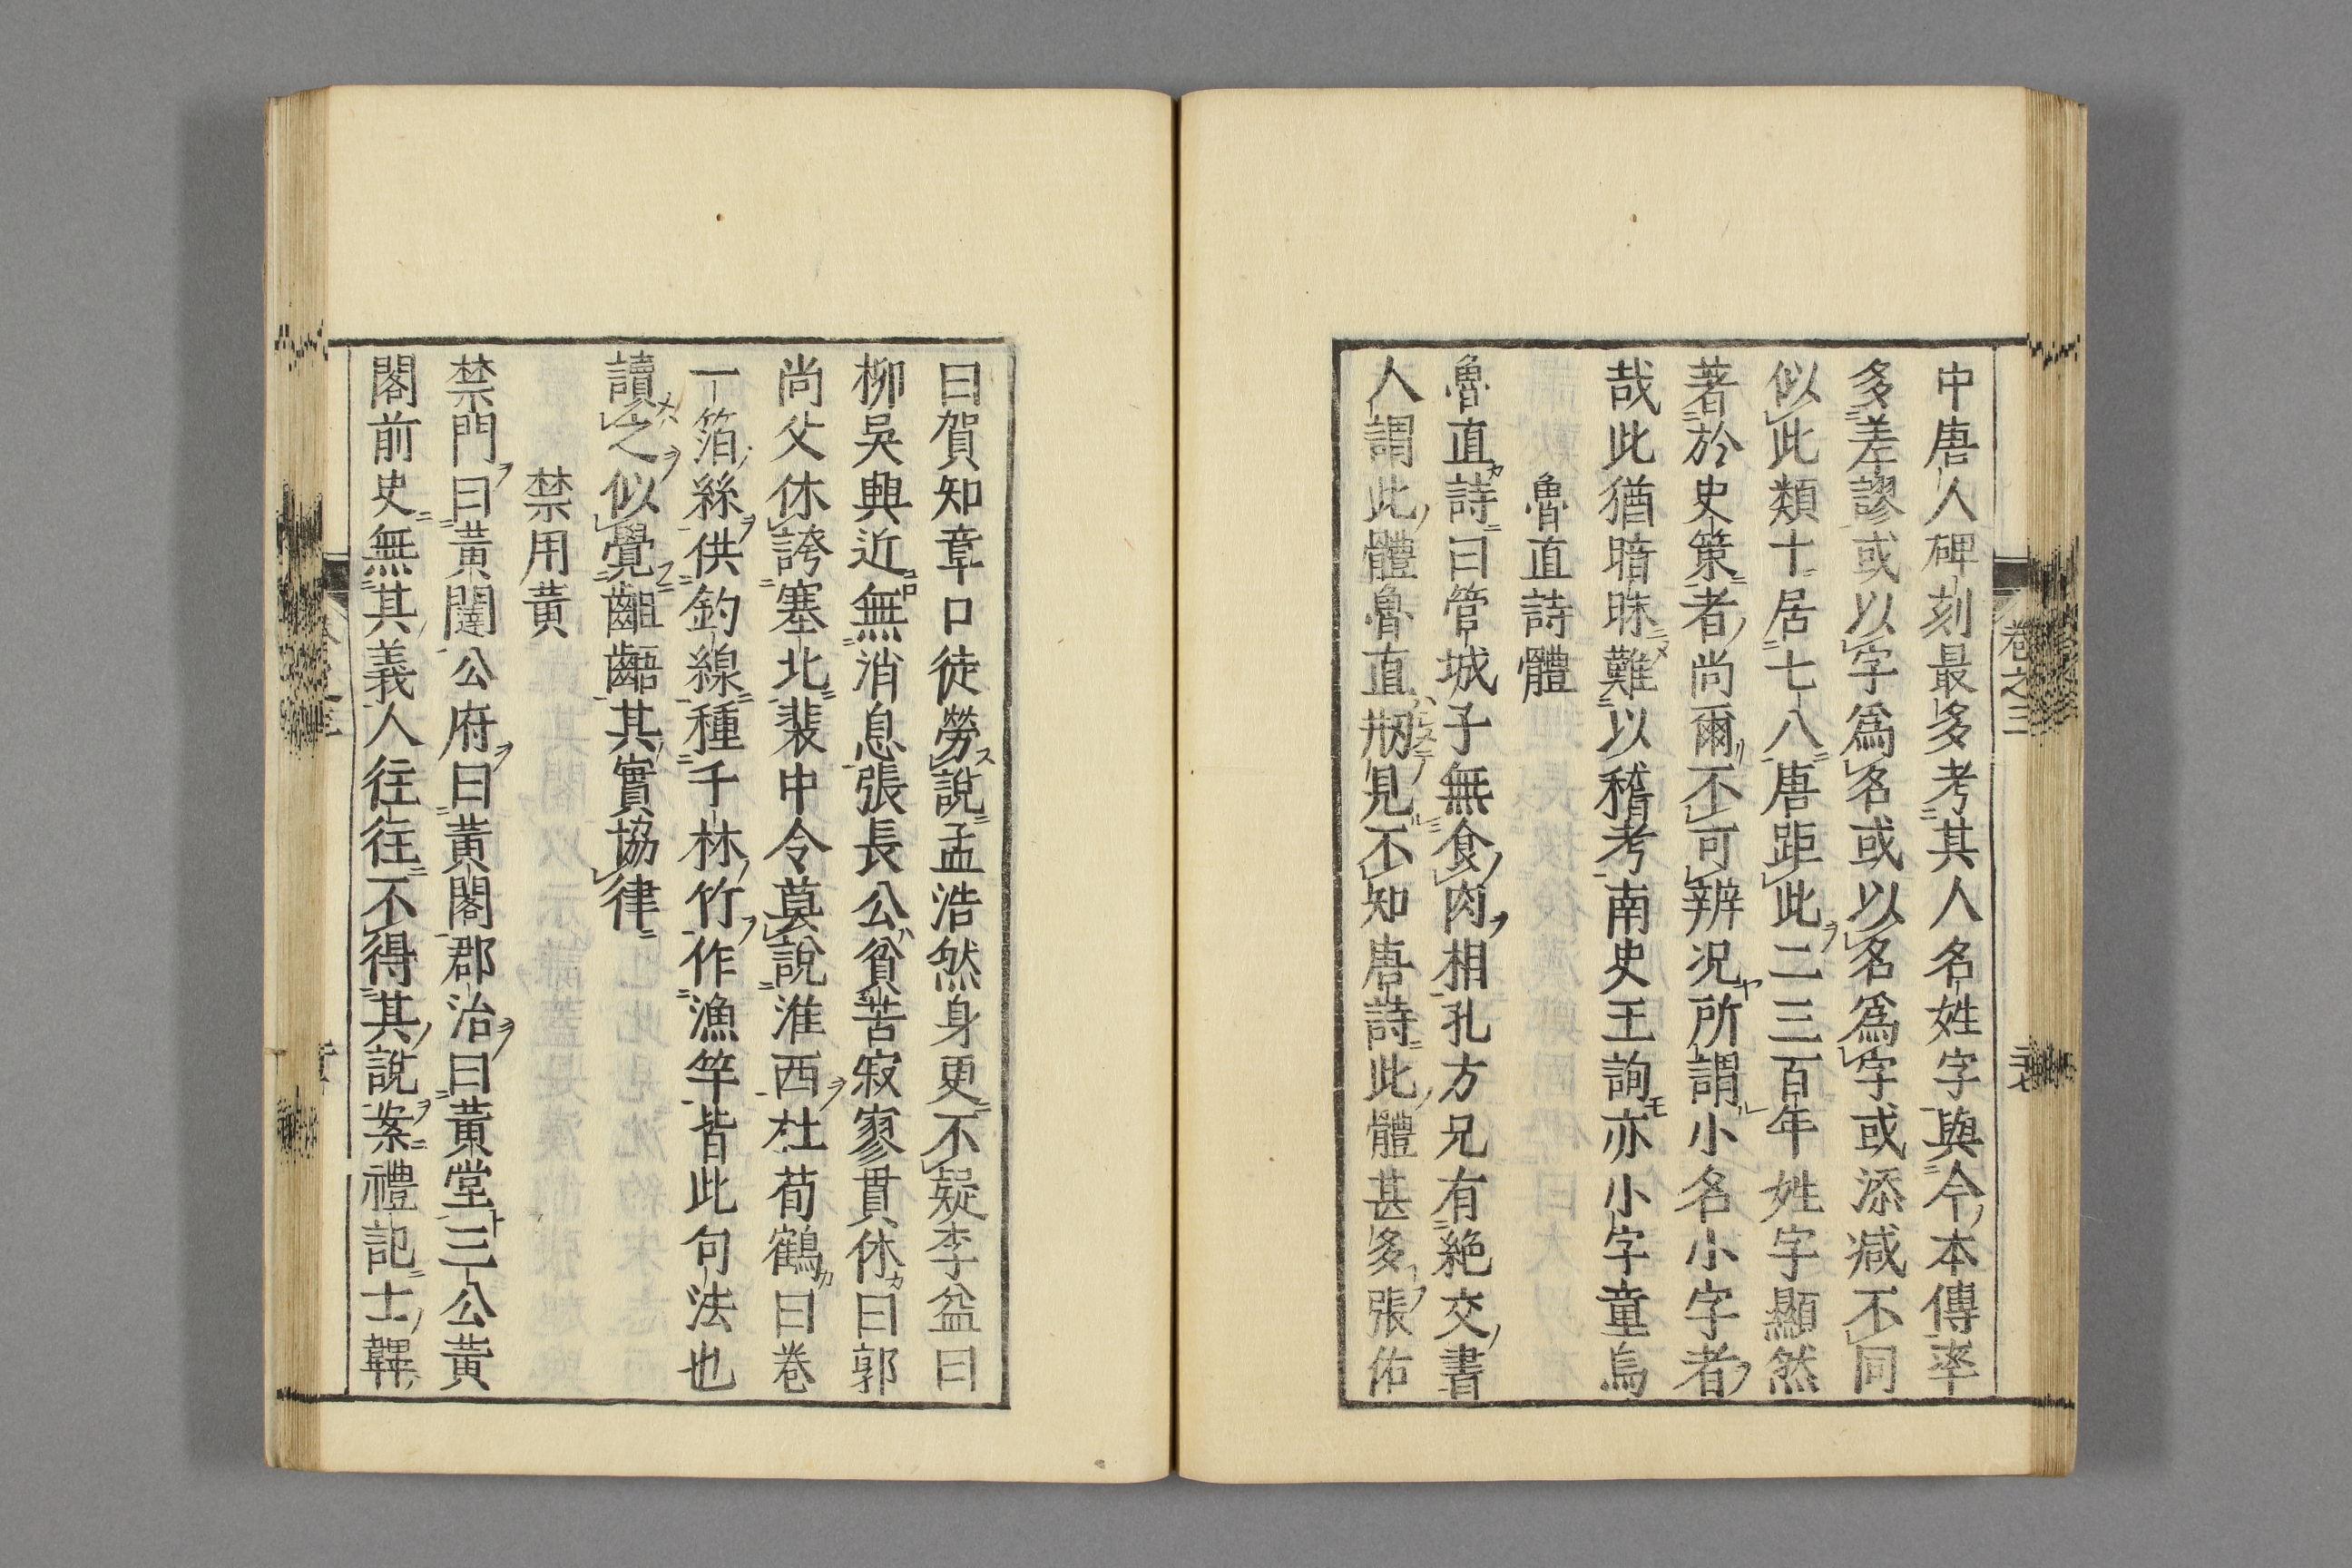 中唐人碑刻最多考其人名姓字與今本傳率
多差謬或以字爲名或以名爲字或添减不同
似此類十居七八唐距此二三百年姓字顯然
著於史策者尚爾不可辨况所謂小名小字者
哉此猶暗昧難以稽考南史王詢亦小字童烏
魯直詩體
魯直詩曰管城子無食肉相孔方兄有絶交書
人謂此體魯直剏見不知唐詩此體甚多張佑
曰賀知章口徒勞說孟浩然身更不疑李益曰
柳吳興近無消息張長公貧苦寂寥貫休曰郭
尚父休誇塞北裴中令莫說淮西杜荀鶴曰卷
一箔絲供釣線種千林竹作漁竿皆此句法也
讀之似覺齟齬其實協律
禁用黄
禁門曰黄闥公府曰黄閣郡治曰黄堂三公黄
閣前史無其義人往往不得其說案禮記士韠
卷之三